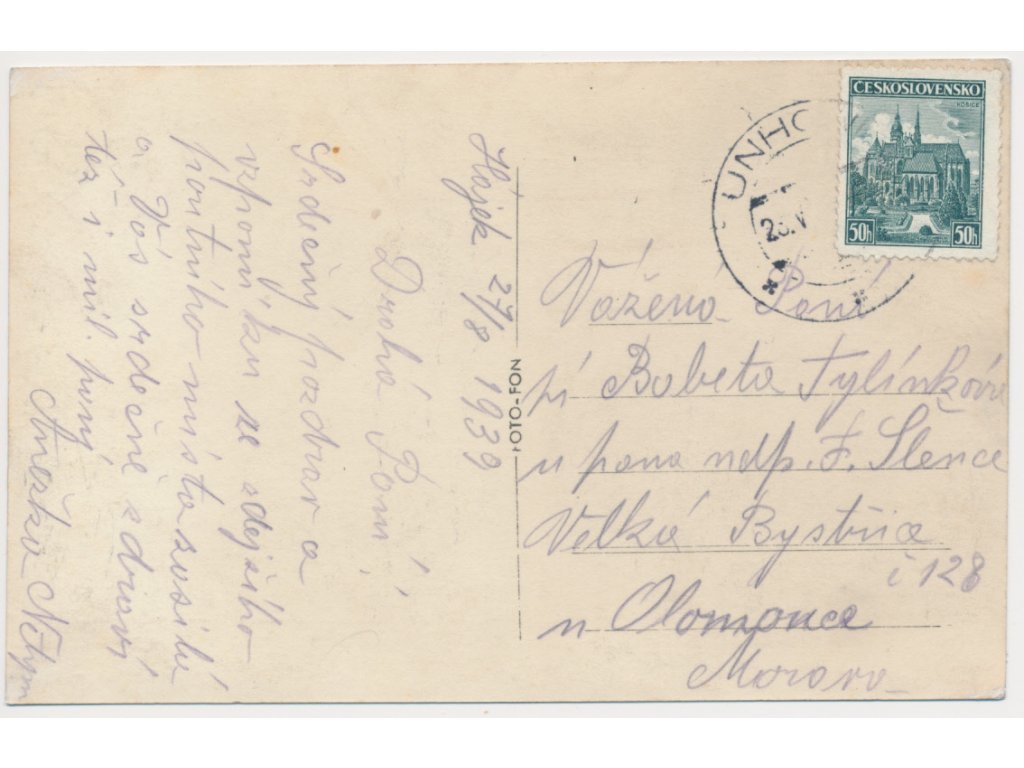 Hájek 27/8 1939
Drahá Paní!
Srdečný pozdrav a
vzpomínku ze zdejšího
poutního místa zasílá
a Vás srdečně zdraví
též i mil. paný
Anežka
FOTO-FON
ČESKOSLOVENSKO
KOŠICE
50h 50h
UNHO
Vážená Paní
pí Babeta Tylínková
u pana ndp. F. Slence
Velká Bystřice
č 128
u Olomouce
Morava